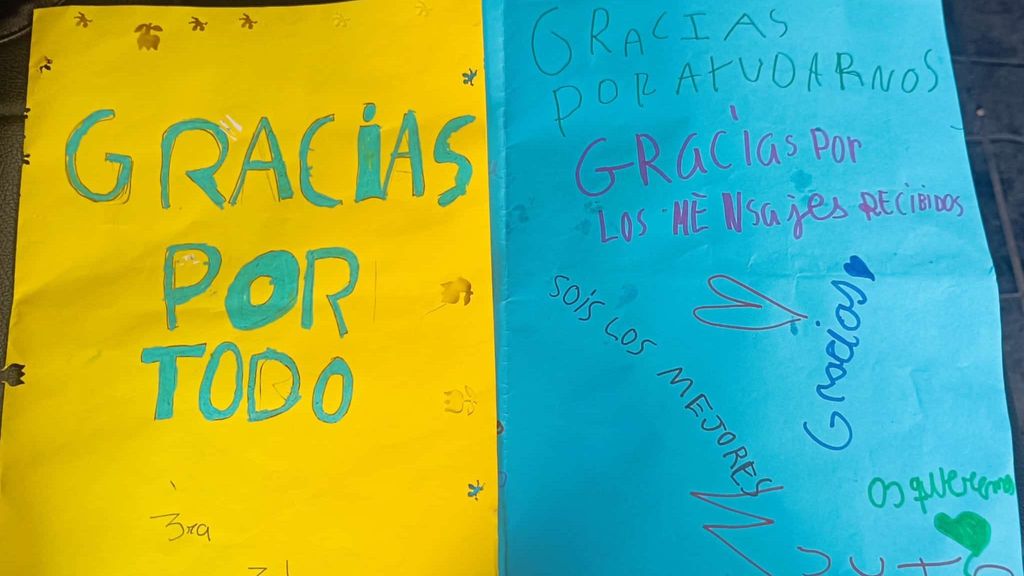 GRACIAS
POR
TODO
3ra
GRACIAS
POR AYUDARNOS
GRACIAS POR
LOS MENSAJES RECIBIDOS
SOIS LOS MEJORES
Gracias
os queremos